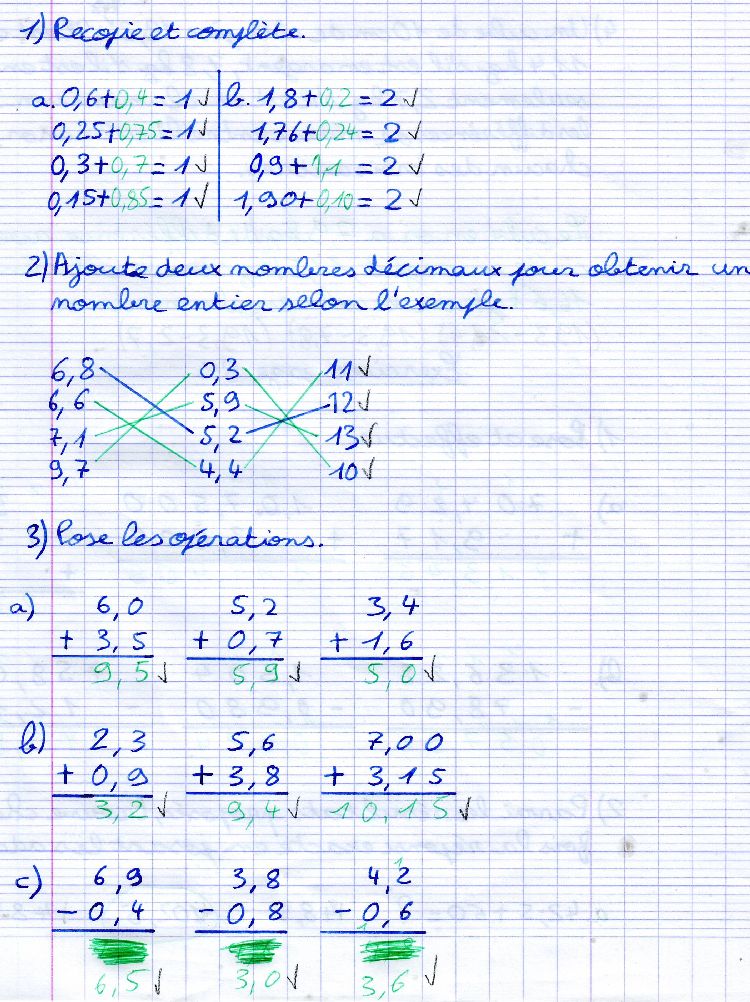 1) Recopie et complète.
a. 0,6+0,4=1 ✓ b. 1,8+0,2=2 ✓
0,25+0,75=1 ✓ 1,76+0,24=2 ✓
0,3+0,7=1 ✓ 0,9+1,1=2 ✓
0,15+0,85=1 ✓ 1,90+0,10=2 ✓
2) Ajoute deux nombres décimaux pour obtenir un
nombre entier selon l'exemple.
6,8 0,3 11 ✓
6,6 5,9 12 ✓
7,1 5,2 13 ✓
9,7 4,4 10 ✓
3) Pose les opérations.
a) 6,0 5,2 3,4
+ 3,5 + 0,7 + 1,6
9,5 ✓ 5,9 ✓ 5,0 ✓
b) 2,3 5,6 7,00
+ 0,9 + 3,8 + 3,15
3,2 ✓ 9,4 ✓ 10,15 ✓
c) 6,9 3,8 4,12
- 0,4 - 0,8 - 10,6
6,5 ✓ 3,0 ✓ 3,6 ✓